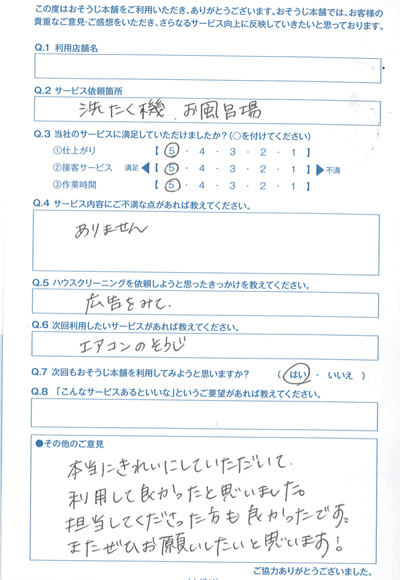 この度はおそうじ本舗をご利用いただき、ありがとうございます。おそうじ本舗では、お客様の
貴重なご意見・ご感想をいただき、さらなるサービス向上に反映していきたいと思っております。
Q.1 利用店舗名
Q.2 サービス依頼箇所
洗たく機、お風呂場
Q.3 当社のサービスに満足していただけましたか?(○を付けてください)
①仕上がり 【 5 ・ 4 ・ 3 ・ 2 ・ 1 】
②接客サービス 満足 ◀【 5 ・ 4 ・ 3 ・ 2 ・ 1 】▶ 不満
③作業時間 【 5 ・ 4 ・ 3 ・ 2 ・ 1 】
Q.4 サービス内容にご不満な点があれば教えてください。
ありません
Q.5 ハウスクリーニングを依頼しようと思ったきっかけを教えてください。
広告をみて、
Q.6 次回利用したいサービスがあれば教えてください。
エアコンのそうじ
Q.7 次回もおそうじ本舗を利用してみようと思いますか? ( はい ・ いいえ )
Q.8 「こんなサービスあるといいな」というご要望があれば教えてください。
●その他のご意見
本当にきれいにしていただいて、
利用して良かったと思いました。
担当してくださった方も良かったです。
またぜひお願いしたいと思います!
ご協力ありがとうございました。